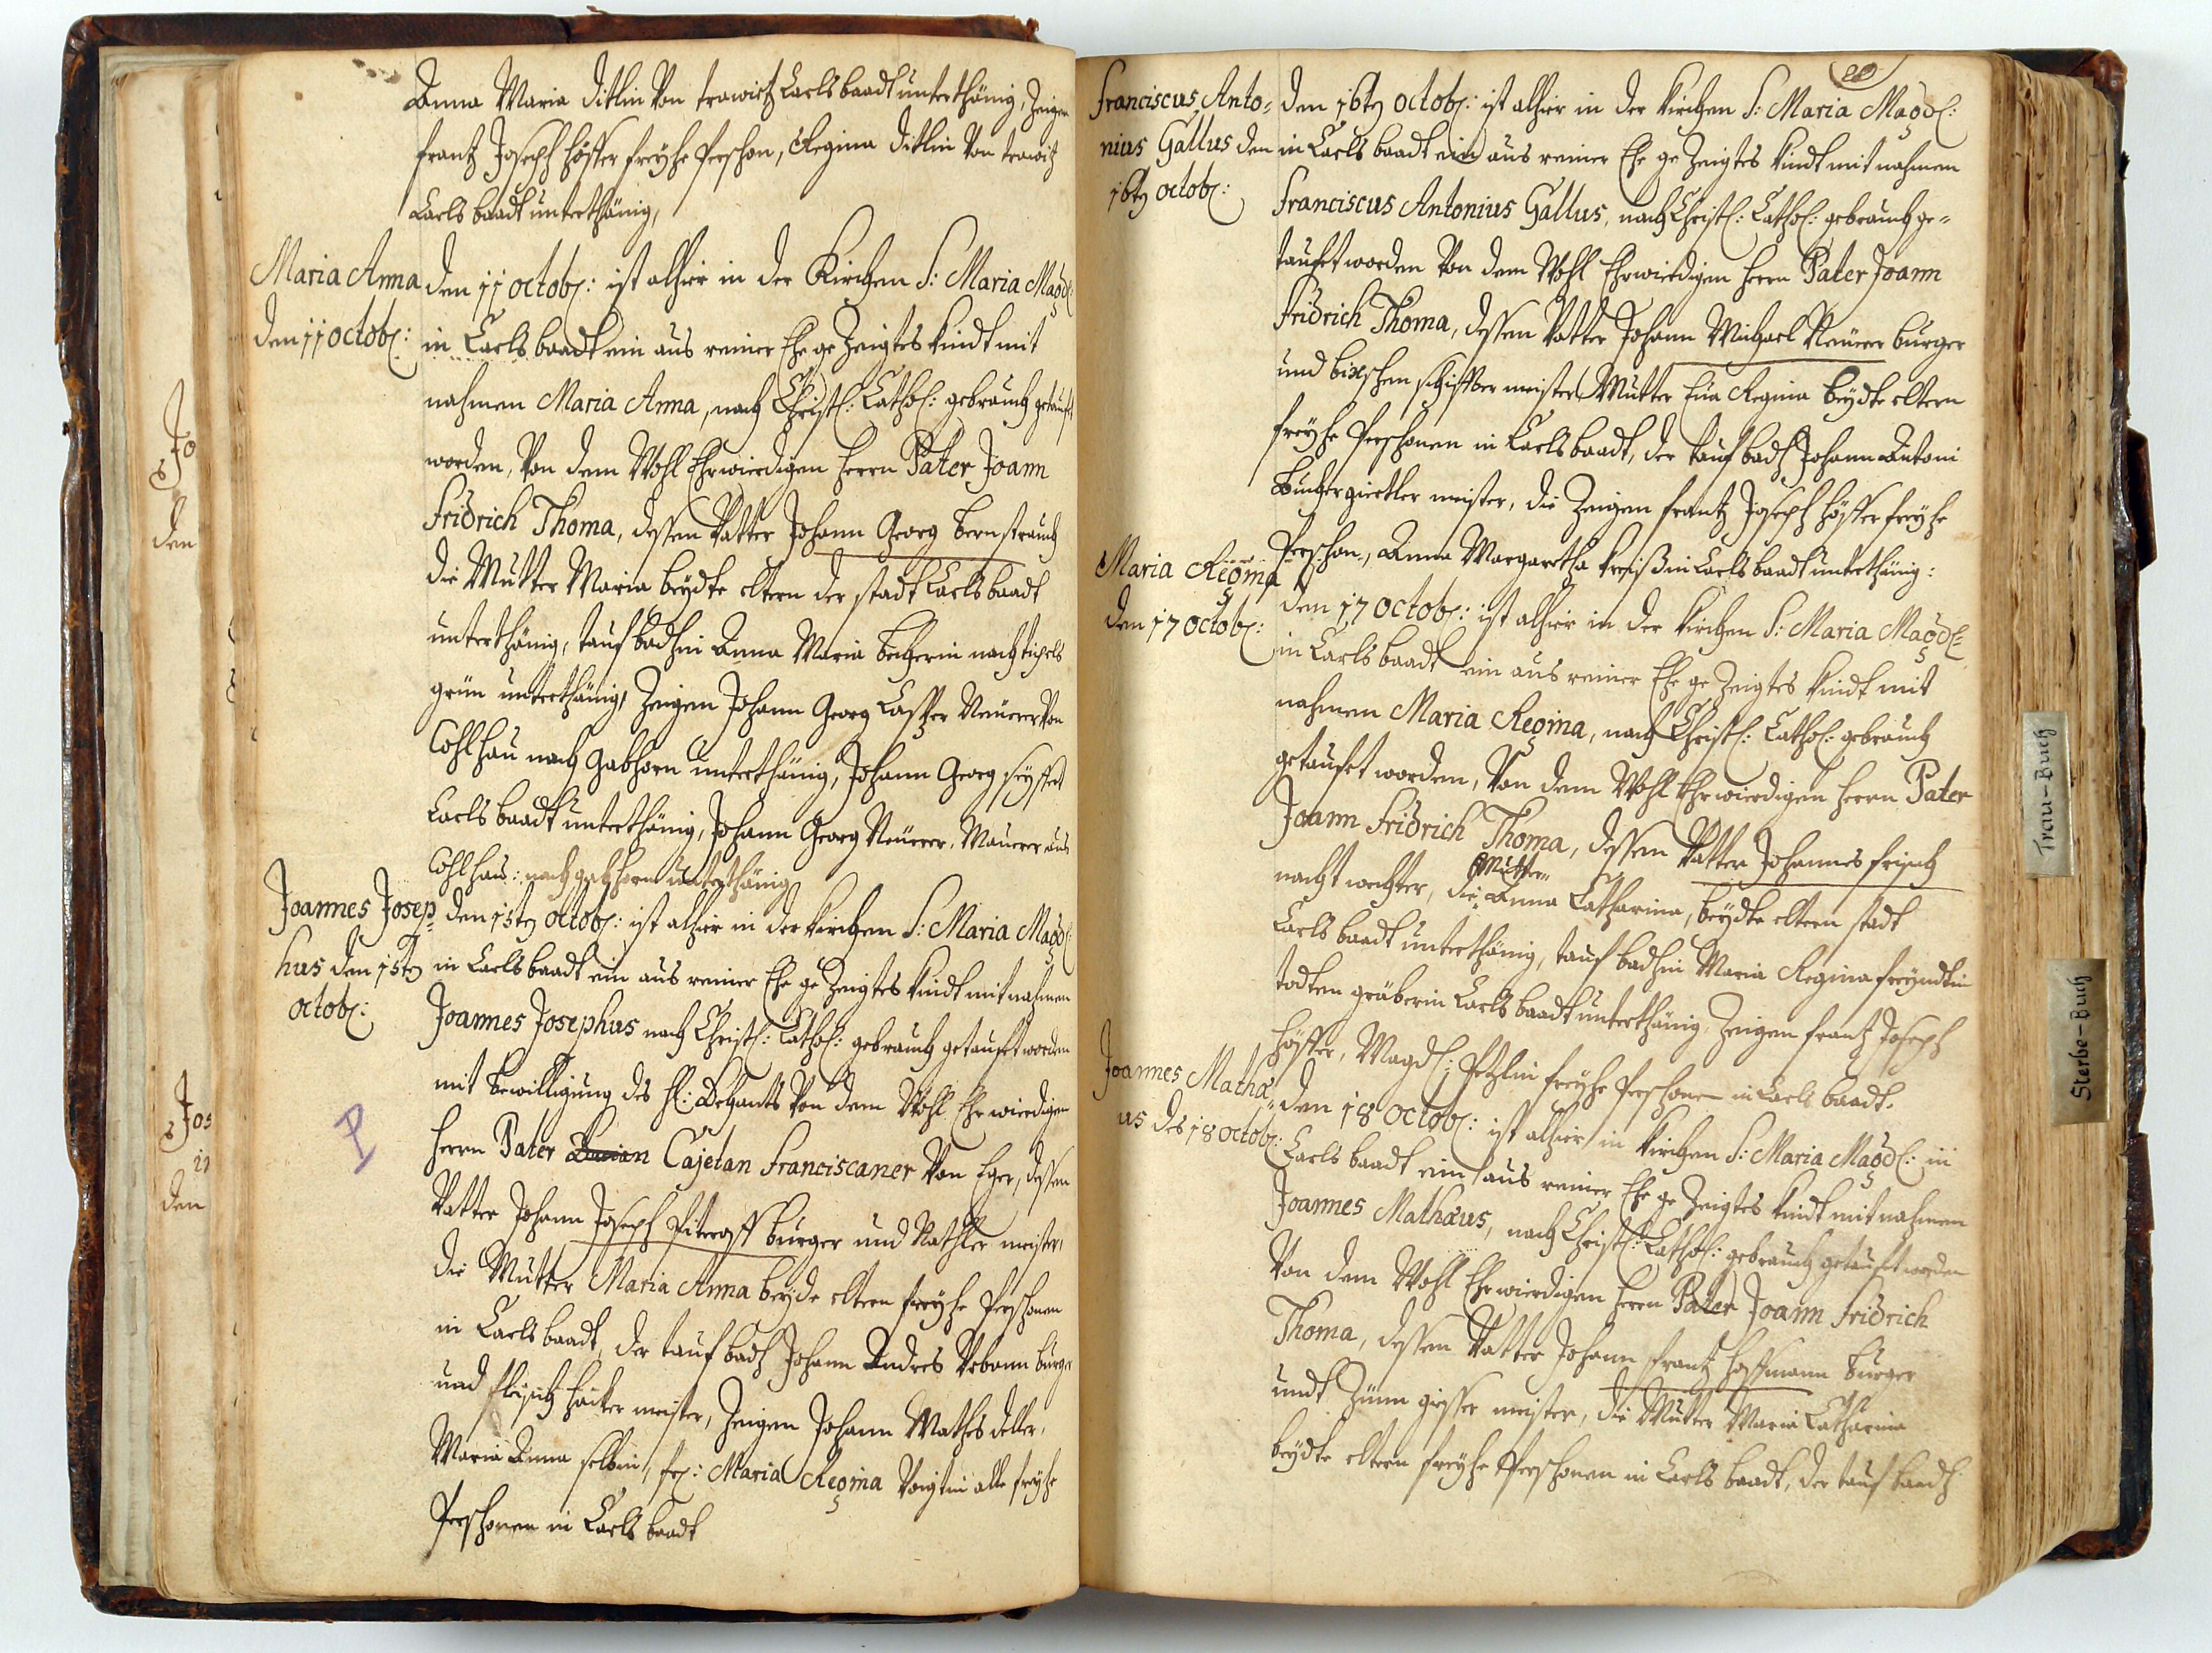 Anna Maria Ditlin Von trawitz Carls baadt unterthänig, Zeugen
frantz Joseph Höffer freyhe Perschon, Regina Ditlin Von trawitz
Carls baadt unterthänig,
Maria Anna
den 11 octob:
den 11 octob: ist alhier in der Kirchen S: Maria Magd:
in Carls baadt ein aus reiner Ehe ge Zeigtes Kindt mit
nahmen Maria Anna, nach Christl: Cathol: gebrauch getauft
worden, Von dem Wohl Ehrwierdigen Herrn Pater Joann
Fridrich Thoma, dessen Vatter Johann Georg Bernstrauch
die Mutter Maria beydte eltern der stadt Carls baadt
unterthänig, tauf badhin Anna Maria Becherin nach
grün unterthänig, Zeugen Johann Georg Casper Neürer Von
Cohlhau nach Gabhorn unterthänig, Johann Georg seyffert
Carls baadt unterthänig, Johann Georg Neürer, Maurer aus
Cohlhau: nach gabhorn unterthänig
Joannes Josep=
hus den 15ten
octob:
den 15ten octob: ist alhier in der Kirchen S: Maria Magd:
in Carls baadt ein aus reiner Ehe ge Zeigtes Kindt mit nahmen
Joannes Josephus nach Christl: Cathol: gebrauch getauft worden
mit bewilligung des H: Dechants Von dem Wohl Ehrwierdigen
Herrn Pater Cajetan Franciscaner Von Eger, dessen
Vatter Johann Joseph Pitroff burger und Nathler meister,
die Mutter Maria Anna beyde eltern freyhe Perschonen
in Carls baadt, der tauf badh Johann Andres Urbann burger
und fleisch hacker meister, Zeugen Johann Mathes deller,
Maria Anna selbin, fr: Maria Regina Voigtin alle freyhe
Perschonen in Carls baadt
Franciscus Anto=
nius Gallus den
16ten octob:
den 16ten octob: ist alhier in der Kirchen S: Maria Magd:
in Carls baadt ein aus reiner Ehe ge Zeigtes Kindt mit nahmen
Franciscus Antonius Gallus, nach Christl: Cathol: gebrauch ge=
tauft worden Von dem Wohl Ehrwierdigen Herrn Pater Joann
Fridrich Thoma, dessen Vatter Johann Michael Neürer burger
und bixschen schiffter meister, Mutter Eua Regina beydte eltern
freyhe Perschonen in Carls baadt, der tauf badh Johann Antoni
meister, die Zeugen frantz Joseph Höffer freyhe
Perschon, Anna Margaretha Carls baadt unterthänig:
Maria Regina
den 17 octob:
den 17 octob: ist alhier in der Kirchen S: Maria Magd:
in Carls baadt ein aus reiner Ehe ge Zeigtes Kindt mit
nahmen Maria Regina, nach Christl: Cathol: gebrauch
getauft worden, Von dem Wohl Ehrwierdigen Herrn Pater
Joann Fridrich Thoma, dessen Vatter Johannes frisch
nacht wechter, die Mutter Anna Catharina, beydte eltern stadt
Carls baadt unterthänig, tauf badhin Maria Regina freyndtin
todten gräberin Carls baadt unterthänig, Zeugen frantz Joseph
Höffer, Magd: Petzlin freyhe Perschonen in Carls baadt.
Joannes Mathæ=
us des 18 octob:
den 18 octob: ist alhier in Kirchen S: Maria Magd: in
Carls baadt ein aus reiner Ehe ge Zeigtes Kindt mit nahmen
Joannes Mathæus, nach Christl: Cathol: gebrauch getauft worden
Von dem Wohl Ehrwierdigen Herrn Pater Joann Fridrich
Thoma, dessen Vatter Johann frantz Hoffmann burger
undt Zünn gisser meister, die Mutter Maria Catharina
beydte eltern freyhe Perschonen in Carls baadt, der tauf baadh
Trau-Buch
Sterbe-Buch